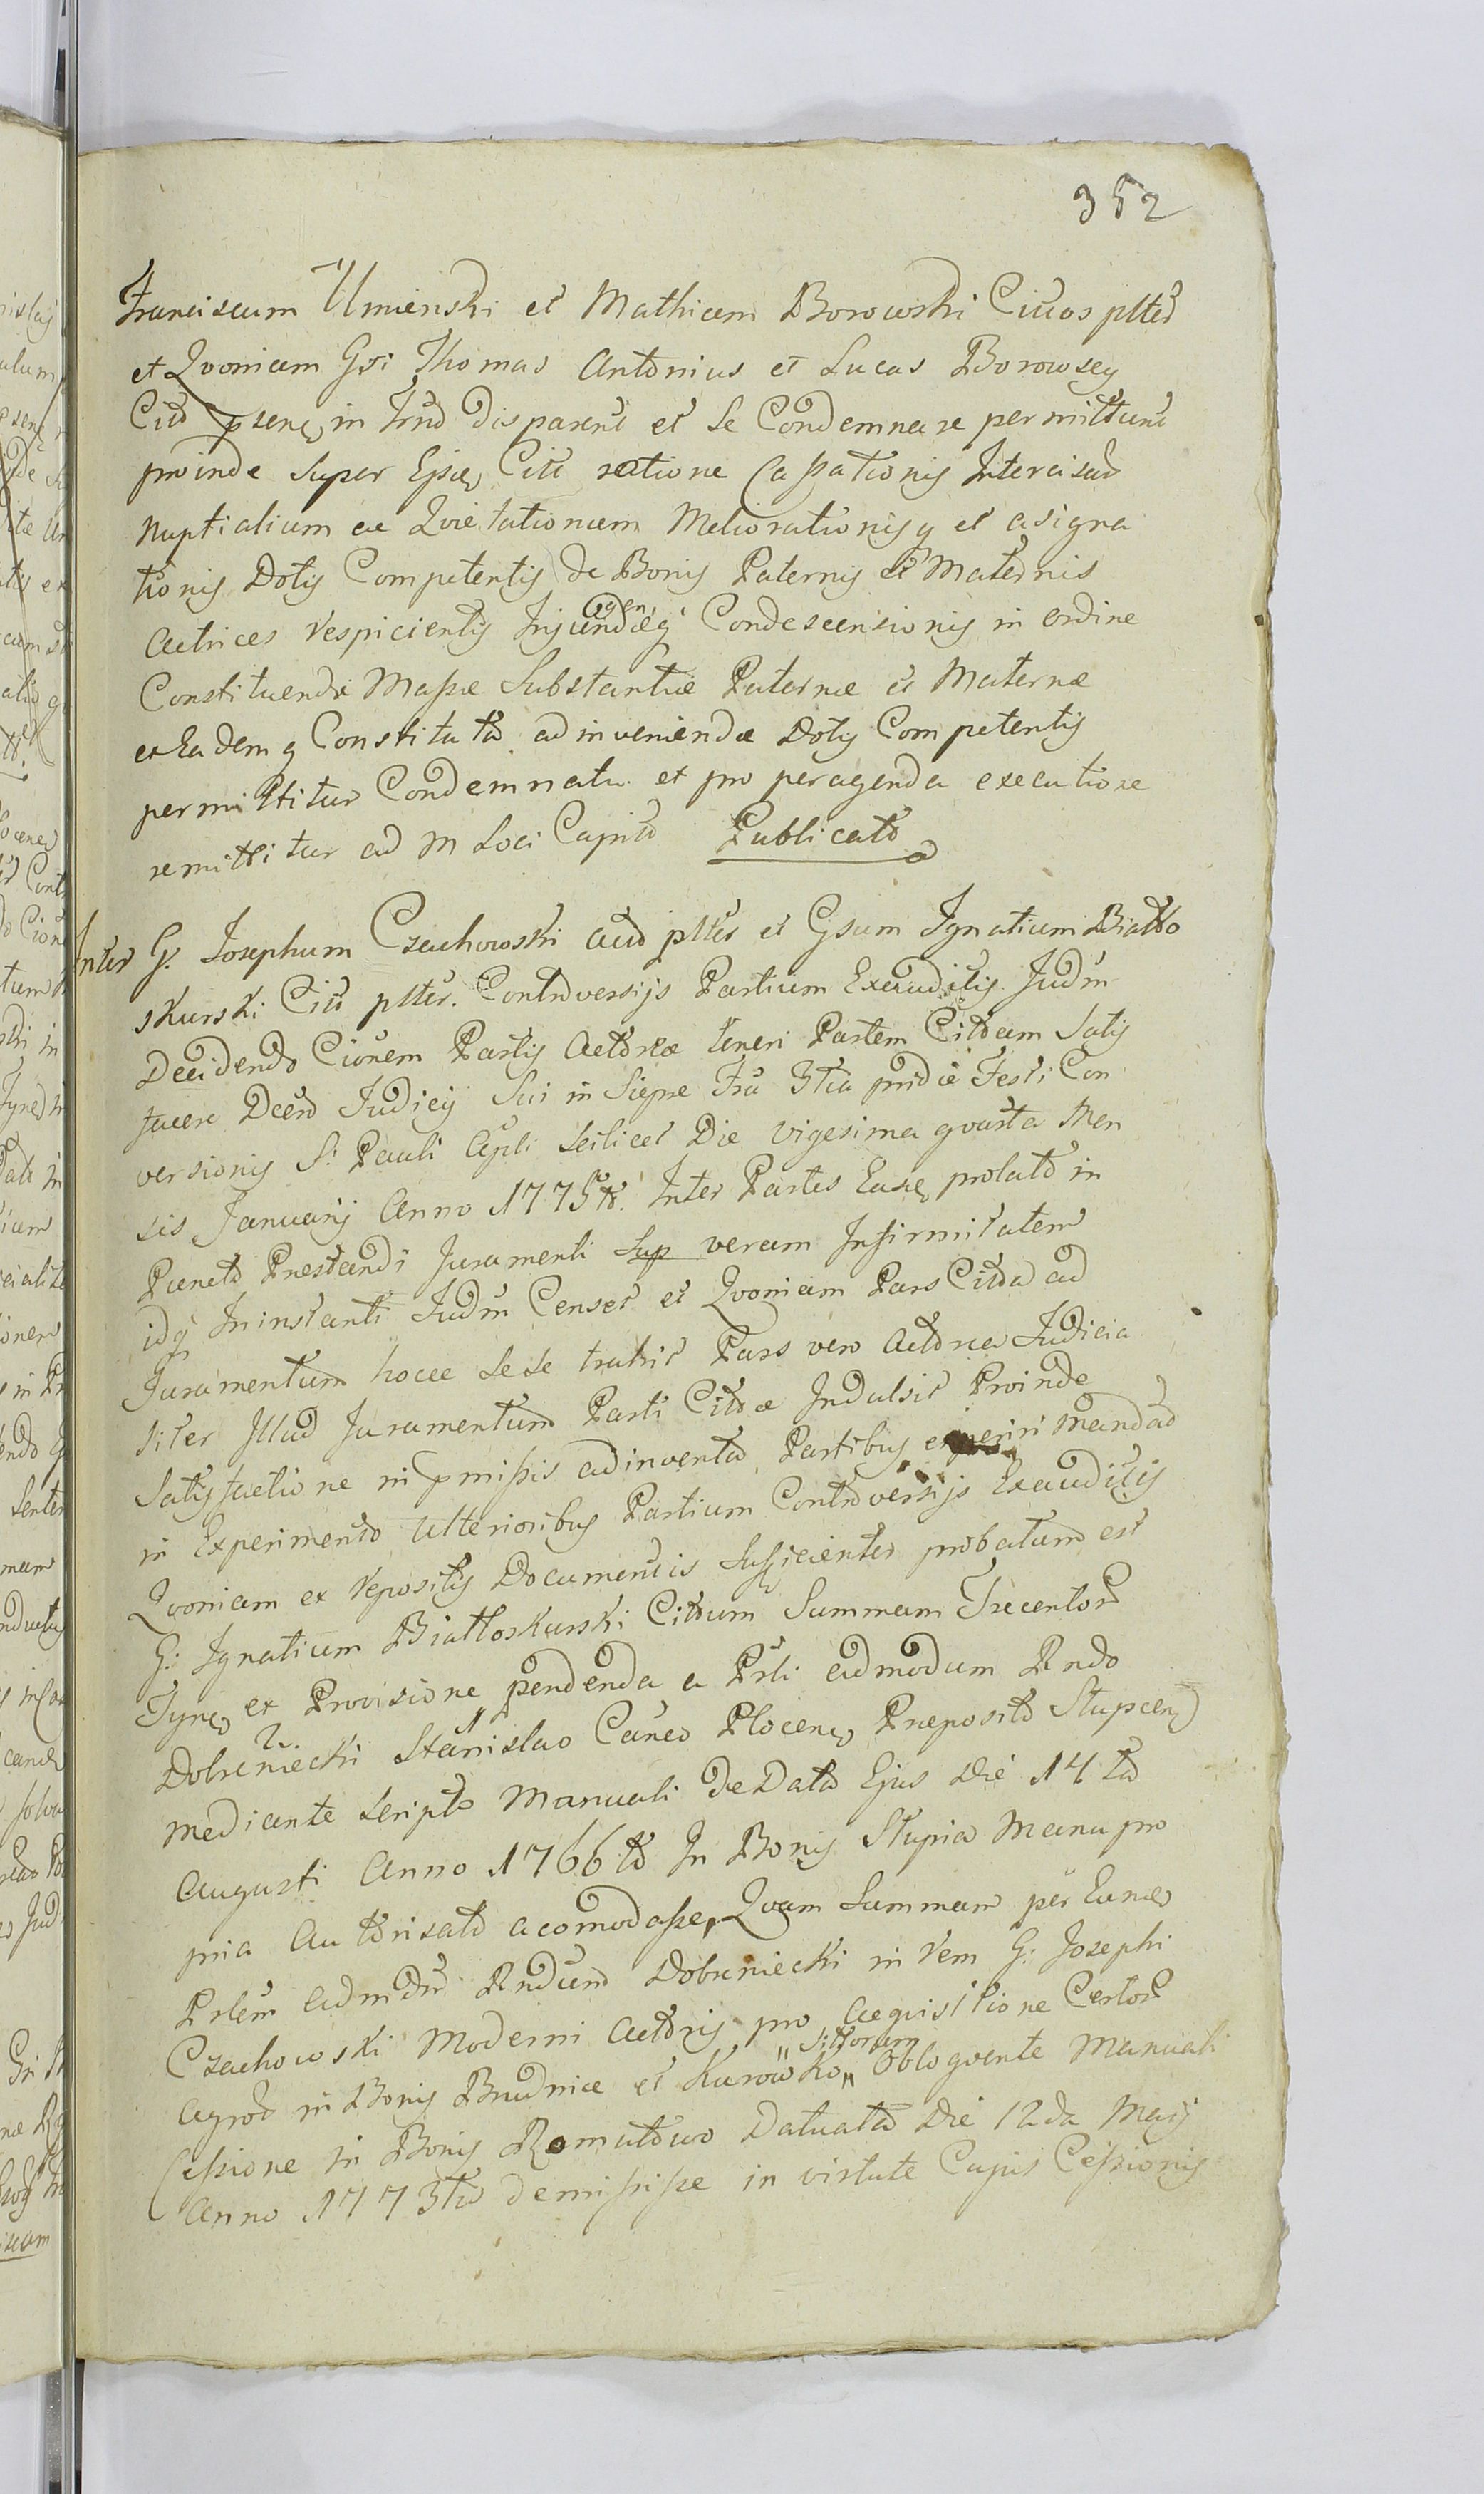 352
Franciscum Umienski et Mathiam Borowski Cittos ptter
et Qvoniam Gsi Thomas Antonius et Lucas Borowscy
Citti psenq in Trno disparent et se Condemnare permittunt
proinde super Ejsdq Citt ratione Cassationis Intercisar
nuptialium ac Qvietationum Meliorationisq et asigna
tionis Dotis Competentis de Bonis Paternis et Maternis
Actrices respicientis Injungendæq Condescensionis in ordine
Constituendæ Massæ Substantiæ Paternæ et Maternæ
ex Eademq Constituta adinveniendæ Dotis Competentis
permittitur Condemnatu et pro peragenda executione
remittitur ad M Loci Capito Publicato
Inter G. Josephum Czachowski Acto ptter et Gsum Ignatium Biatto
skurski Citt ptter. Controversijs Partium Exauditis Judm
Decidendo Cionem Partis Actoreæ teneri Partem Cittam Satis
facere Decro Judicij Sui in Siepre Fra 3tia pridie Festi Con
versionis S: Pauli Apli Scilicet Die vigesima qvarta Men
sis Januarij Anno 1775to. Inter Partes Easdq prolato in
Puncto Præstandi Juramenti Sup veram Infirmitatem
idq Ininstanti Judm Censet et Qvoniam Pars Citta ad
Juramentum hocce sese trahit Pars vero Actorea Judicia
liter Illud Juramentum Parti Cittæ Indulsit Proinde
Satisfactione in pmissis adinventa Partibus experiri mandat
in Experimento Ulterioribus Partium Controversijs Exauditis
Qvoniam ex repositis Documentis Sufficienter probatum est
G: Ignatium Biattoskurski Cittum Summam Trecentor
Tynf ex Provisione pendenda a Prli admodum Rndo
Dobrniecki Stanislao Canco Plocenq Præposito Stupcenq
mediante scripto Manuali de Data Ejus Die 14ta
Augusti Anno 1766to In Bonis Stupia Manu pro
pria Authorisato acomodasse, Qvam Summam per Eundq
Prlem admdm Rndum Dobrniecki in rem G: Josephi
Czachowski Moderni Actoris pro Acquisitione Certor
Agror in Bonis Brudnice et Kurowko " sittorum " Obloqvente Manuali
Cessione in Bonis Romutowo Datuata Die 12da Maij
Anno 1773tio demisisse in virtute Cujus Cessionis